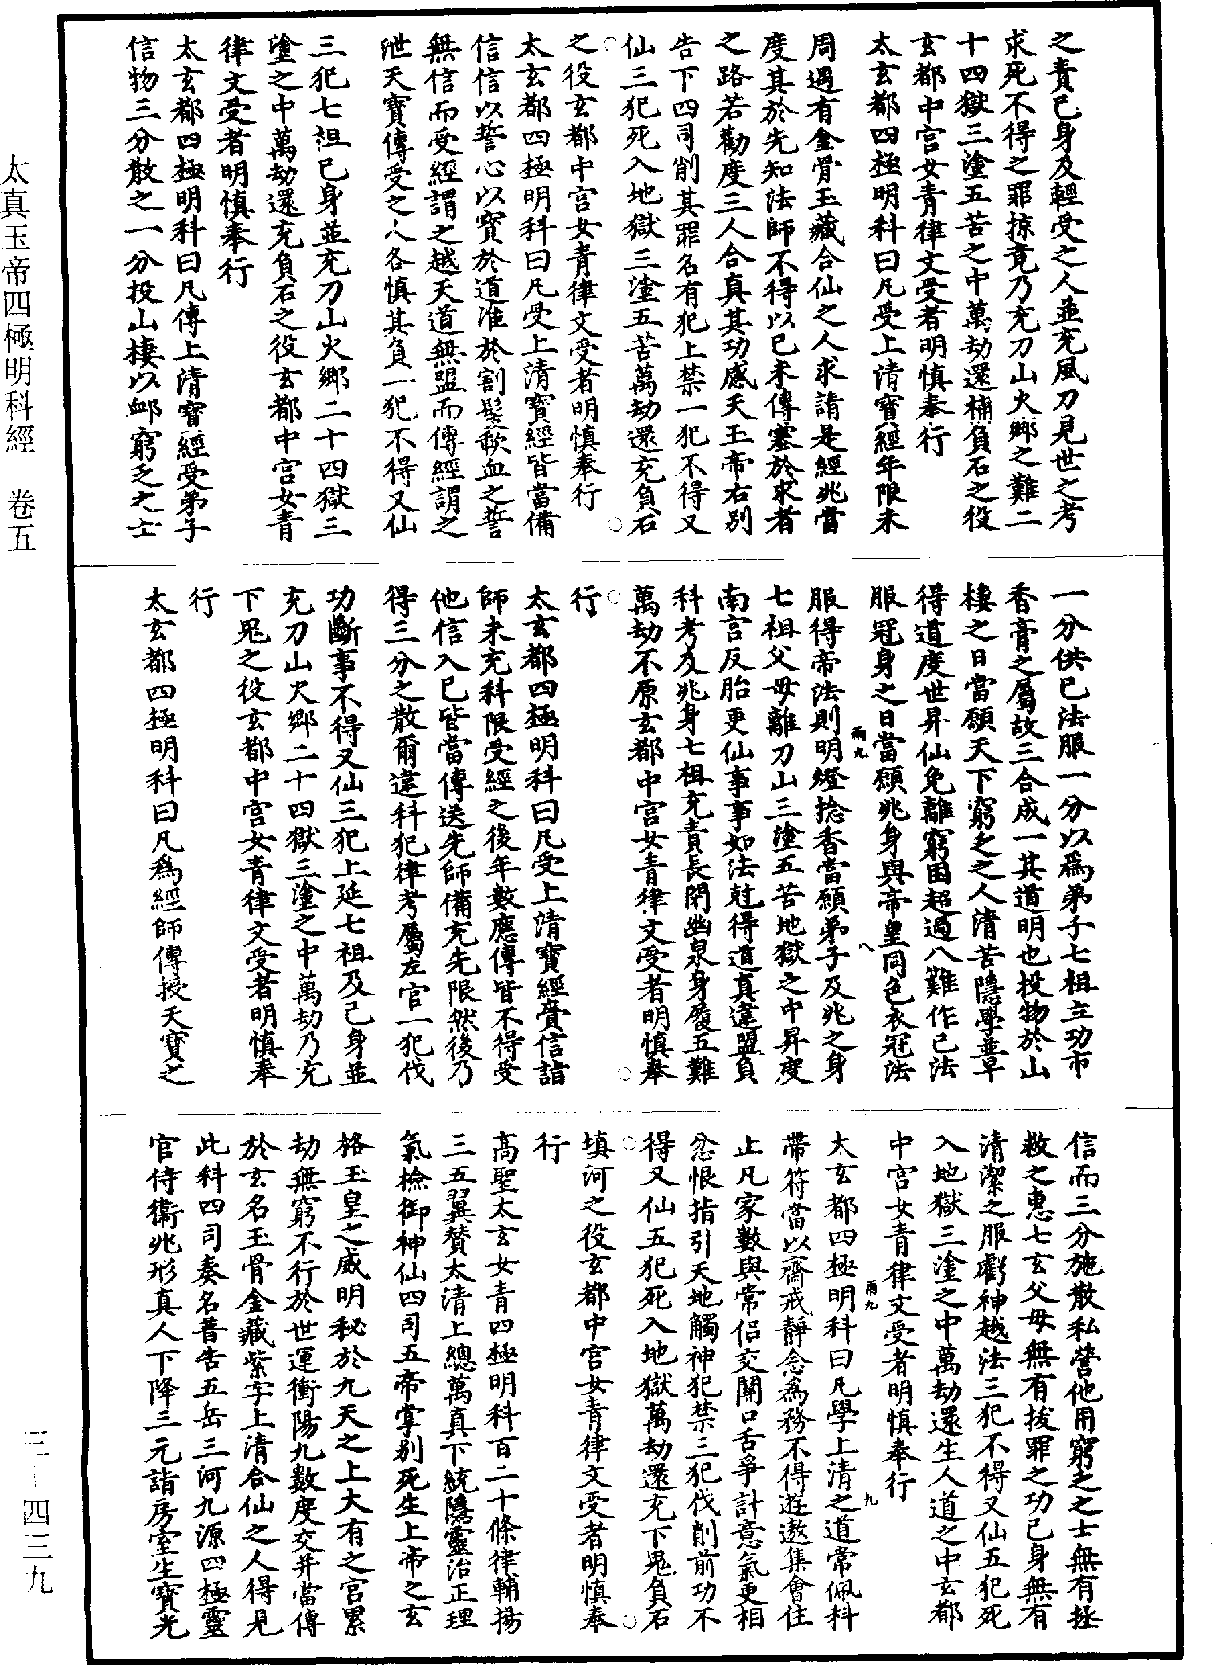 之責已身及輕受之人並充風刀見世之考
求死不得之罪掠竟乃充刀山火鄉之難二
十四獄三塗五苦之中萬劫還補負石之役
玄都中宮女青律文受者明慎奉行
太玄都四極明科曰凡受上清寶經年限未
周遇有金骨玉藏合仙之人求請是經兆當
度其於先知法師不得以已未傳塞於求者
之路若勸度三人合真其功感天玉帝右別
告下四司削其罪名有犯上禁一犯不得又
仙三犯死入地獄三塗五苦萬劫還充負石
之役玄都中宮女青律文受者明慎奉行
太玄都四極明科曰凡受上清寶經皆當備
信信以誓心以寶於道准於割髮歃血之誓
無信而受經謂之越天道無盟而傳經謂之
泄天寶傳受之人各慎其負一犯不得又仙
三犯七祖已身並充刀山火鄉二十四獄三
塗之中萬劫還充負石之役玄都中宮女青
律文受者明慎奉行
太玄都四極明科曰凡傳上清寶經受弟子
信物三分散之一分投山棲以卹窮乏之士
一分供已法服一分以為弟子七祖立功市
香膏之屬故三合成一其道明也投物於山
棲之日當願天下窮乏之人清苦隱學善早
得道度世昇仙免離窮困超過八難作已法
服冠身之日當願兆身與帝皇同色衣冠法
服得帝法則明燈捻香當願弟子及兆之身
七祖父母離刀山三塗五苦地獄之中昇度
南宮反胎更仙事事如法尅得道真違盟負
科考及兆身七祖充責長閉幽泉身履五難
萬劫不原玄都中宮女青律文受者明慎奉
行
太玄都四極明科曰凡受上清寶經賫信詣
師未充科限受經之後年數應傳皆不得受
他信入已皆當傳送先師備充先限然後乃
得三分之散爾違科犯律考屬左官一犯伐
功斷事不得又仙三犯上延七祖及己身並
充刀山火鄉二十四獄三塗之中萬劫乃充
下鬼之役玄都中宮女青律文受者明慎奉
行
太玄都四極明科曰凡為經師傳授天寶之
信而三分施散私營他用窮乏之士無有拯
救之惠七玄父母無有拔罪之功已身無有
清潔之服虧神越法三犯不得又仙五犯死
入地獄三塗之中萬劫還生人道之中玄都
中宮女青律文受者明慎奉行
太玄都四極明科曰凡學上清之道常佩科
帶符當以齋戒靜念為務不得遊遨集會住
止凡家數與常侶交關口舌爭計意氣更相
忿恨指引天地觸神犯禁三犯伐削前功不
得又仙五犯死入地獄萬劫還充下鬼負石
填河之役玄都中宮女青律文受者明慎奉
行
高聖太玄女青四極明科百二十條律輔揚
三五翼贊太清上總萬真下統隱靈治正理
氣檢御神仙四司五帝掌別死生上帝之玄
格玉皇之威明秘於九天之上大有之宮累
劫無窮不行於世運衝陽九數度交并當傳
於玄名玉骨金藏紫字上清合仙之人得見
此科四司奏名普告五岳三河九源四極靈
官侍衛兆形真人下降三元詣房室生寶光
太真玉帝四極明科經 卷五
三－四三九